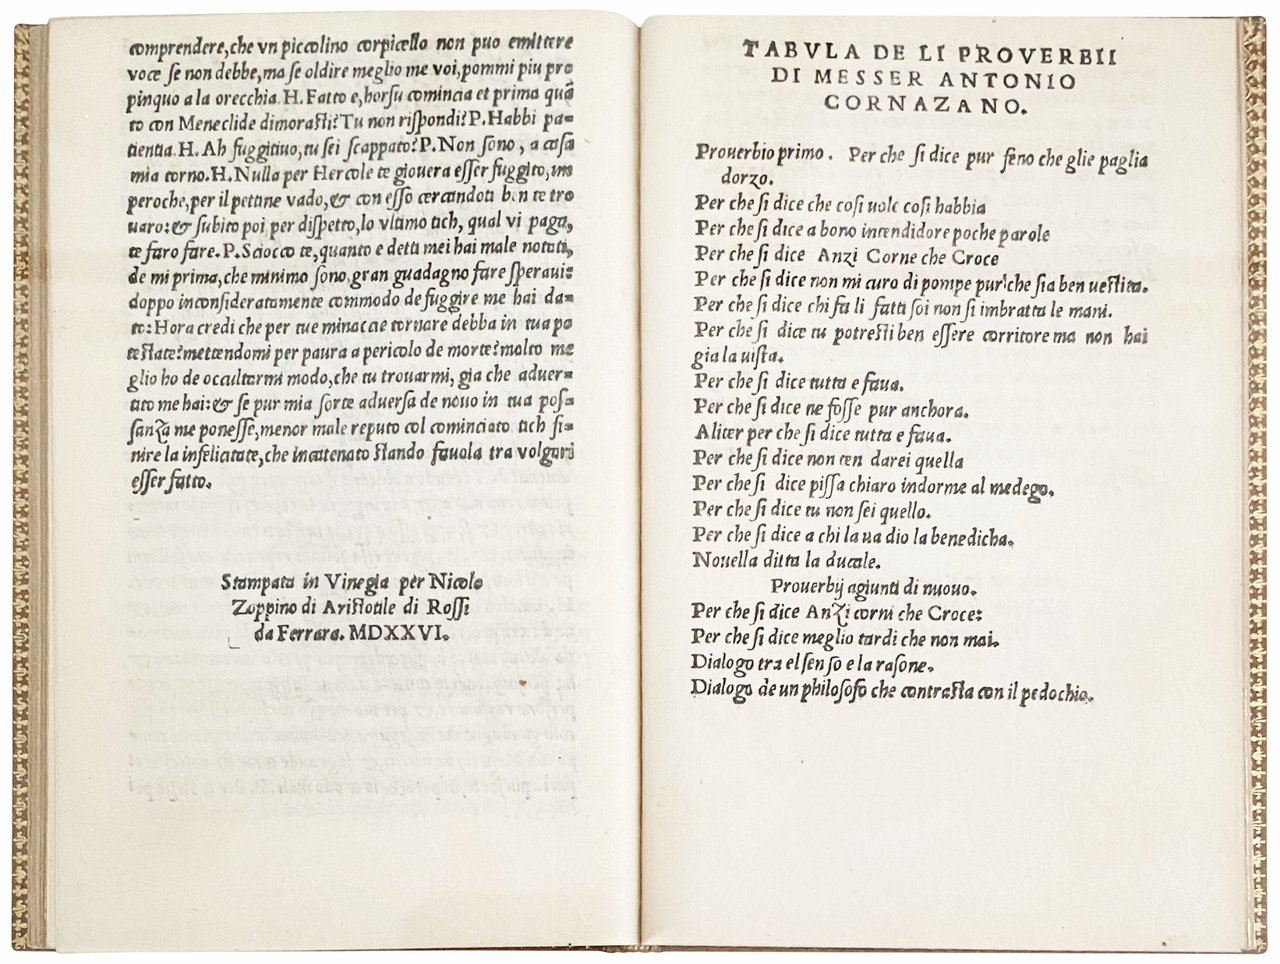 comprendere,che vn piccolino corpicello non puo emittere
voce se non debbe,ma se oldire meglio me voi,pommi piu pro
pinquo a la orecchia.H.Fatto e,horsu comincia et prima quā
to con Meneclide dimorasti?Tu non rispondi?P.Habbi pa=
tientia.H.Ah fuggitiuo,tu sei scappato?P.Non sono, a casa
mia torno.H.Nulla per Hercole te giouera esser fuggito,im
peroche,per il pettine vado,& con esso cercandoti ben te tro
uaro:& subito poi per dispetto,lo vltimo tich, qual vi paga,
te faro fare.P.Sciocco te,quanto e detti mei hai male notati,
de mi prima,che minimo sono,gran guadagno fare sperauis
doppo inconsideratamente commodo de fuggire me hai da=
to:Hora credi che per tue minacae tornare debba in tua po
testate?mettendomi per paura a pericolo de morte?molto me
glio ho de occultarmi modo,che tu trouarmi, gia che aduer=
tito me hai:& se pur mia sorte aduersa de nouo in tua pos=
sanza me ponesse,menor male reputo col cominciato tich fi=
nire la infelicitate,che incattenato stando fauola tra volgari
esser fatto.
Stampata in Vinegia per Nicolo
Zoppino di Aristotile di Rossi
da Ferrara. MDXXVI.
TABVLA DE LI PROVERBII
DI MESSER ANTONIO
CORNAZANO.
Prouerbio primo. Per che si dice pur seno che glie paglia
dorzo.
Per che si dice che cosi uole cosi habbia
Per che si dice a bono intendidore poche parole
Per che si dice Anzi Corne che Croce
Per che si dice non mi curo di pompe pur che sia ben uestita.
Per che si dice chi fa li fatti soi non si imbratta le mani.
Per che si dice tu potresti ben essere corritore ma non hai
gia la uista.
Per che si dice tutta e faua.
Per che si dice ne fosse pur anchora.
Aliter per che si dice tutta e faua.
Per che si dice non ten darei quella
Per che si dice pissa chiaro indorme al medego.
Per che si dice tu non sei quello.
Per che si dice a chi la ua dio la benedicha.
Nouella ditta la ducale.
Prouerbij agiunti di nuouo.
Per che si dice Anzi corni che Croce:
Per che si dice meglio tardi che non mai.
Dialogo tra el senso e la rasone.
Dialogo de un philosofo che contrasta con il pedochio.